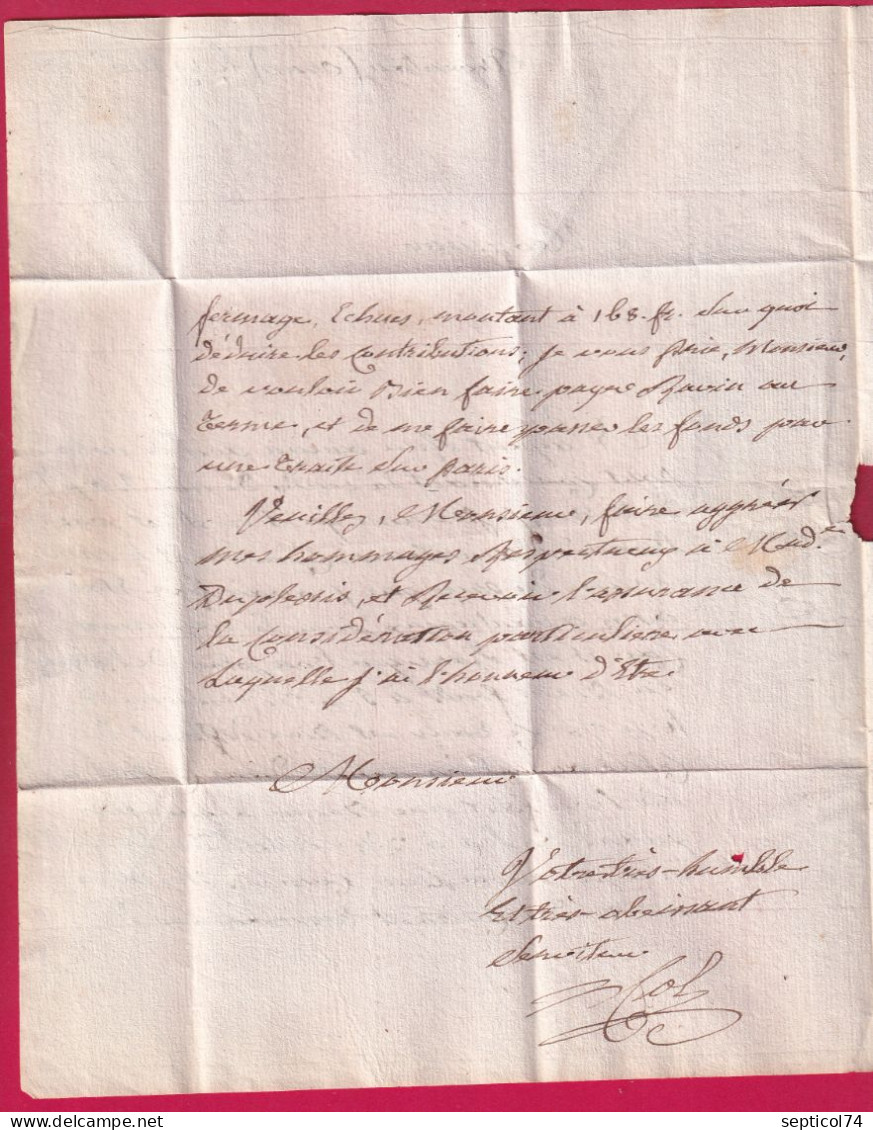 fermage, Echues, montant à 168. fr. sur quoi
déduire les Contributions; je vous prie, Monsieur,
de vouloir Bien faire payer Ravin au
terme, et de me faire passer les fonds pour
une traite sur paris.
Veuillez, Monsieur, faire agréer
mes hommages Respectueux à Mad.e
Duplessis, et Recevoir l'assurance de
la Considération particulière avec
Laquelle j'ai l'honneur d'Etre.
Monsieur
Votre très-humble
Et très-obeissant
Serviteur
septicol74